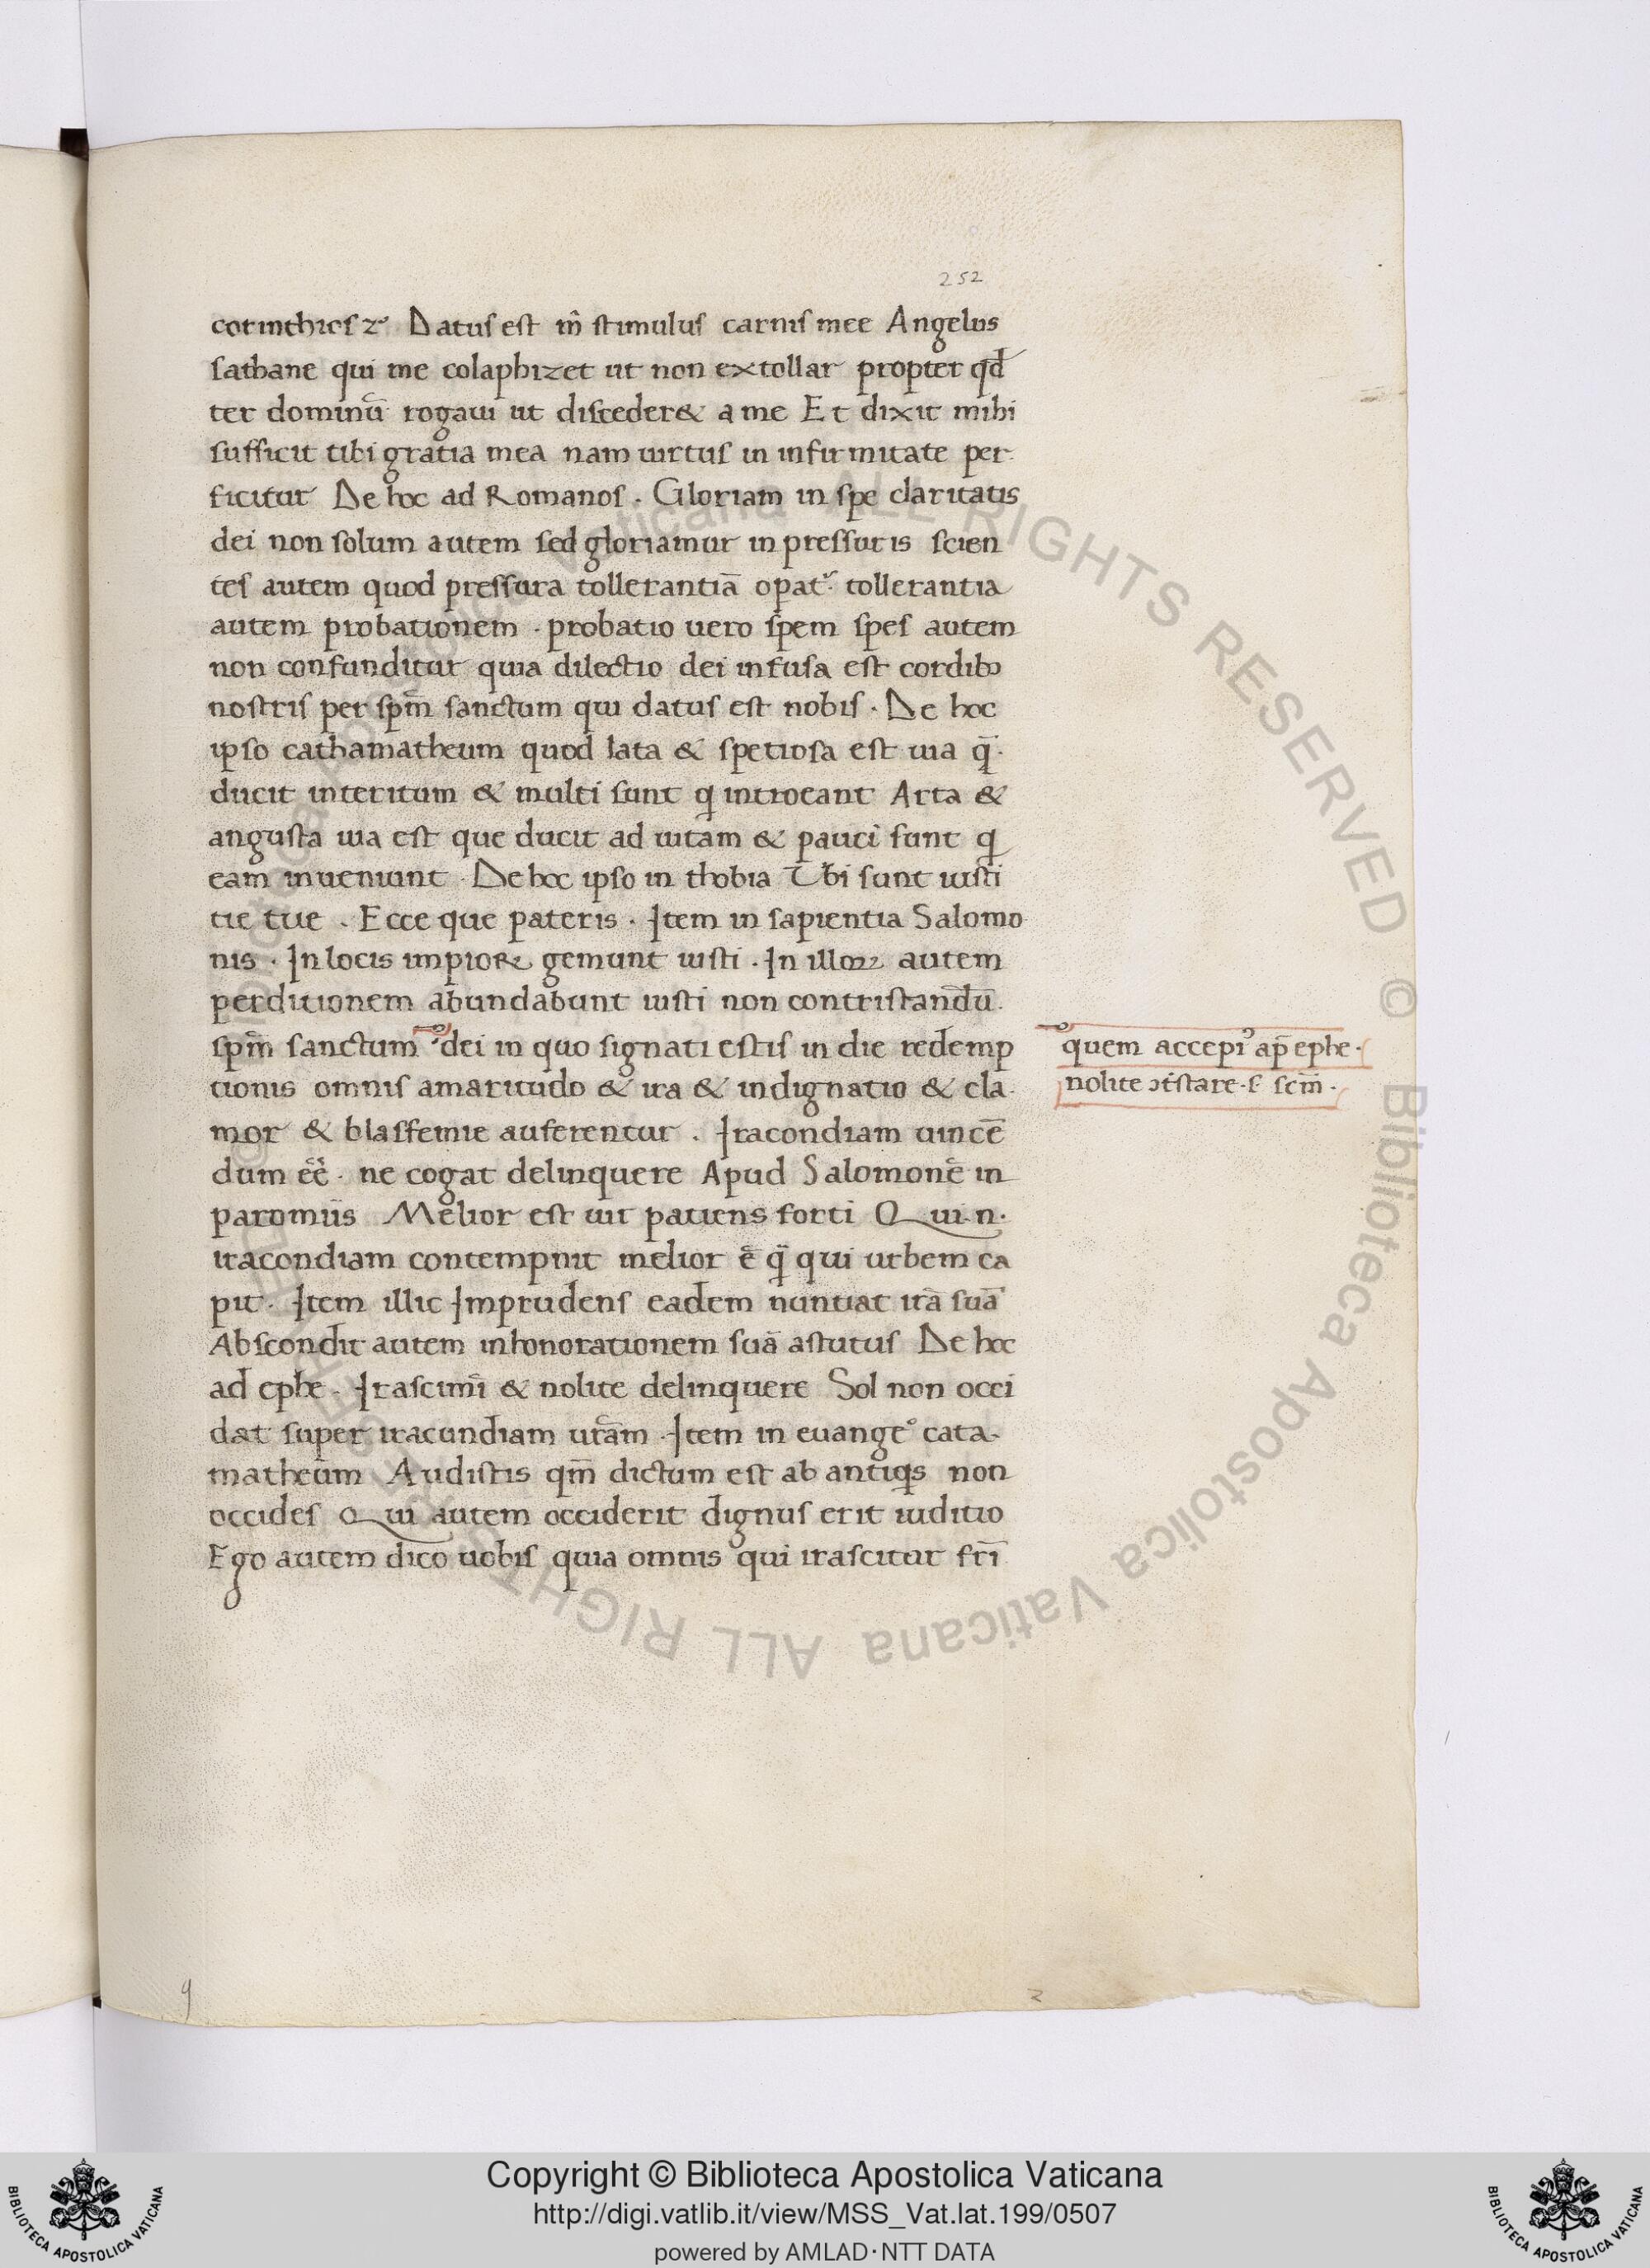 252
corinthios 2ᵃ. Datus est m̂ stimulus carnis mee Angelus
sathane qui me colaphizet ut non extollar propter qd̄
ter dominū rogaui ut disceder& a me Et dixit mihi
sufficit tibi gratia mea nam uirtus in infirmitate per
ficitur De hoc ad Romanos. Gloriam in spe claritatis
dei non solum autem sed gloriamur in pressuris scien
tes autem quod pressura tollerantiā opat᷑. tollerantia
autem probationem. probatio uero spem spes autem
non confunditur quia dilectio dei infusa est cordibꝰ
nostris per spm̄ sanctum qui datus est nobis. De hoc
ipso cathamatheum quod lata & spetiosa est uia q̄.
ducit interitum & multi sunt q introeant Arta &
angusta uia est que ducit ad uitam & pauci sunt q
eam inueniunt. De hoc ipso in thobia Ubi sunt iusti
tie tue. Ecce que pateris. Item in sapientia Salomo
nis. In locis impioꝝ gemunt iusti. In illoꝝ autem
perditionem abundabunt iusti non contristandū.
spm̄ sanctum dei in quo signati estis in die redemp
tionis omnis amaritudo & ira & indignatio & cla
mor & blasfemie auferentur. Iracondiam uincē
dum eē. ne cogat delinquere Apud Salomonē in
paromiis Melior est uir patiens forti Qui.n.
iracondiam contempnit melior ē q̄ qui urbem ca
pit. Item illic Imprudens eadem nuntiat irā suā
Abscondit autem inhonorationem suā astutus De hoc
ad ephe. Irascimī & nolite delinquere Sol non occi
dat super iracundiam urām. Item in euangeº cata
matheum Audistis qm̄ dictum est ab antiqis non
occides Qui autem occiderit dignus erit iuditio
Ego autem dico uobis quia omnis qui irascitur frī
quem accepiꝰ ap̄ ephe.
nolite ɔtstare. s scm̄.
9
2
© Biblioteca Apostolica Vaticana ALL RIGHTS RESERVED © Biblioteca Apostolica Vaticana ALL RIGHTS RESERVED
Copyright © Biblioteca Apostolica Vaticana
http://digi.vatlib.it/view/MSS_Vat.lat.199/0507
powered by AMLAD·NTT DATA
BIBLIOTECA APOSTOLICA VATICANA
BIBLIOTECA APOSTOLICA VATICANA